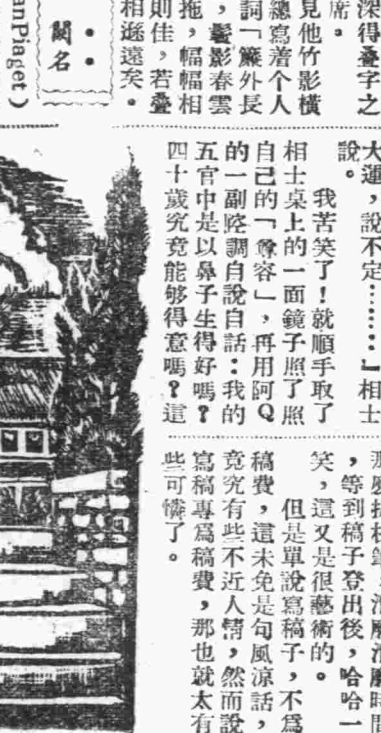 深得疊字之
席。
見他竹影橫
總寫着个人
詞「簾外長
，鬢影春雲
拖，幅幅相
則佳，若疊
相遜遠矣。
闕名
anPiaget)
大運，說不定……」相士
說。
我苦笑了！就順手取了
相士桌上的一面鏡子照了照
自己的「尊容」，再用阿Q
的一副腔調自說自話：我的
五官中是以鼻子生得好嗎？
四十歲究竟能够得意嗎？這
，消磨消磨時間
，等到稿子登出後，哈哈一
笑，這又是很藝術的。
但是單說寫稿子，不爲
稿費，這未免是句風涼話，
竟究有些不近人情，然而說
寫稿專爲稿費，那也就太有
些可憐了。